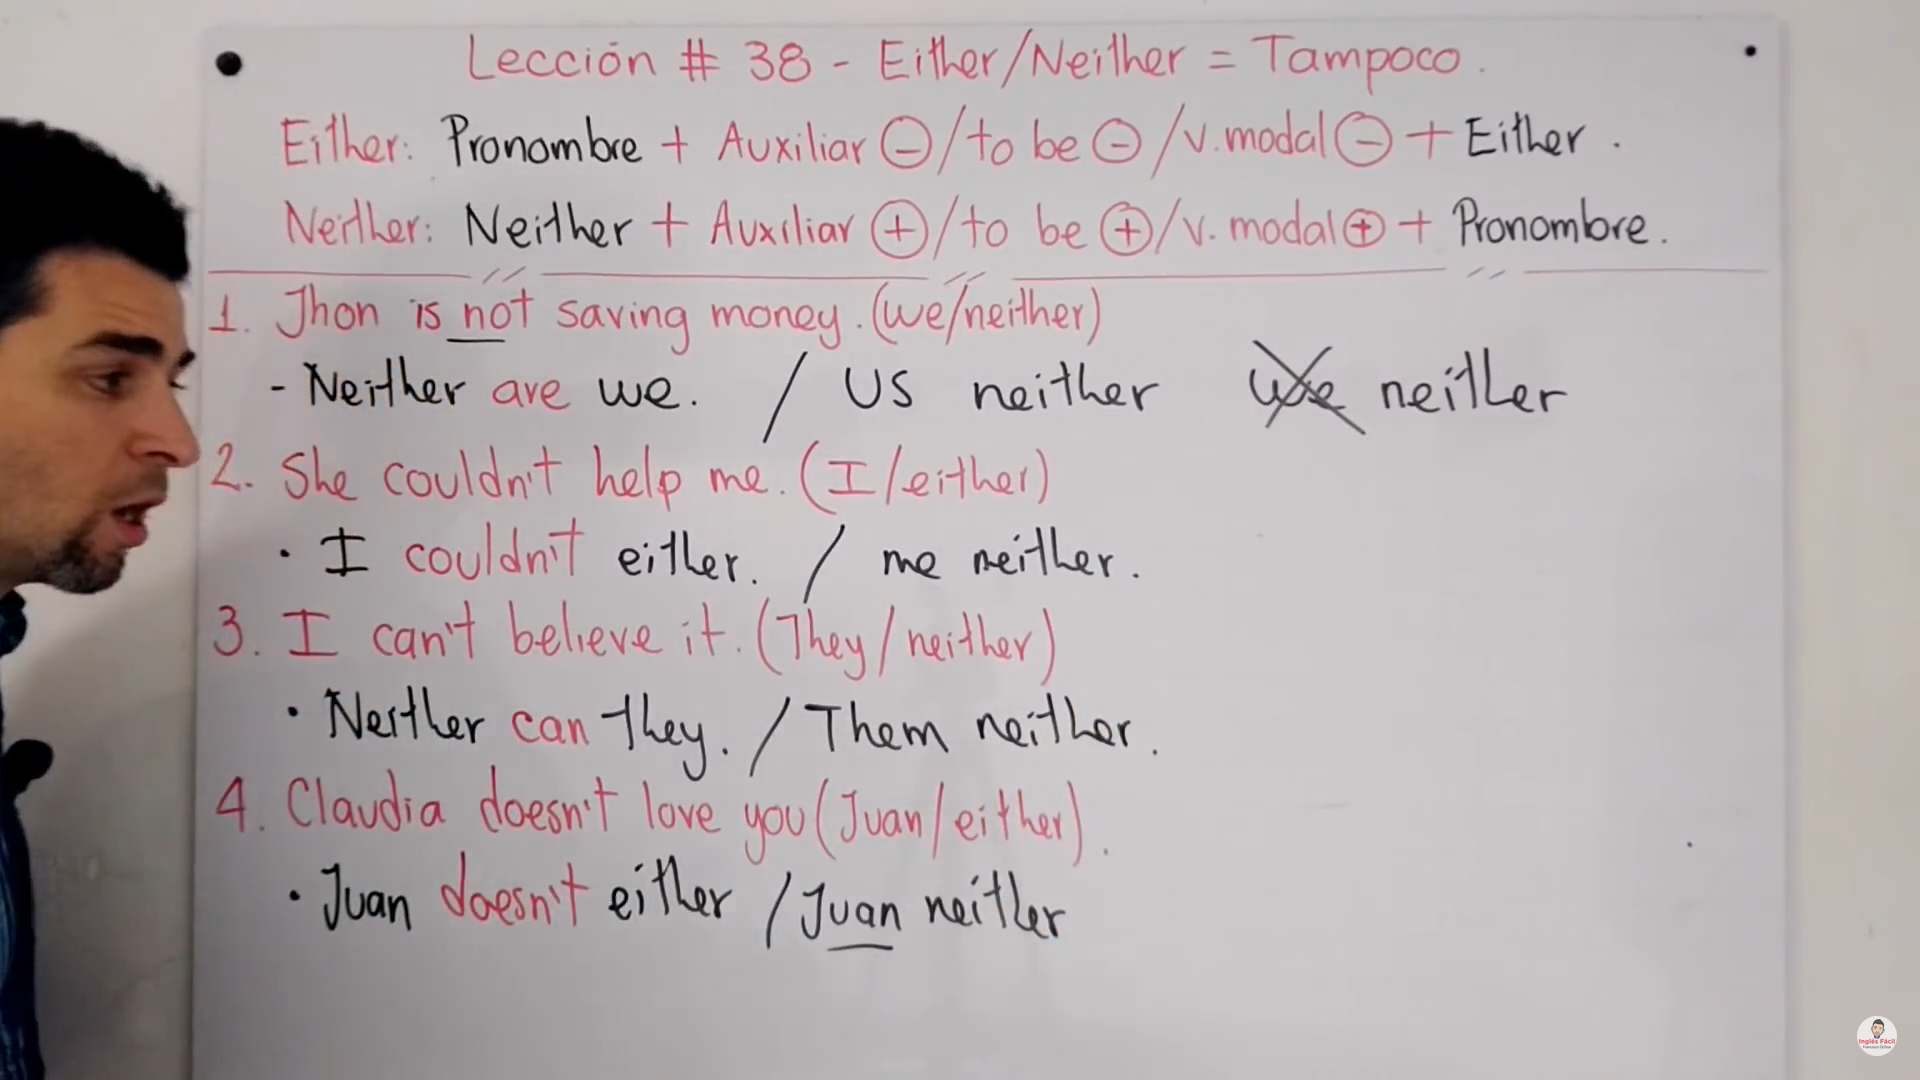 Lección # 38 - Either/Neither = Tampoco.
Either: Pronombre + Auxiliar ⊖/to be ⊖/v.modal ⊖ + Either.
Neither: Neither + Auxiliar ⊕/to be ⊕/v. modal ⊕ + Pronombre.
1. Jhon is not saving money. (we/neither)
- Neither are we. / US neither we neither
2. She couldn't help me. (I/either)
• I couldn't either. / me neither.
3. I can't believe it. (They/neither)
• Neither can they. / Them neither.
4. Claudia doesn't love you (Juan/either).
• Juan doesn't either / Juan neither
Inglés Fácil